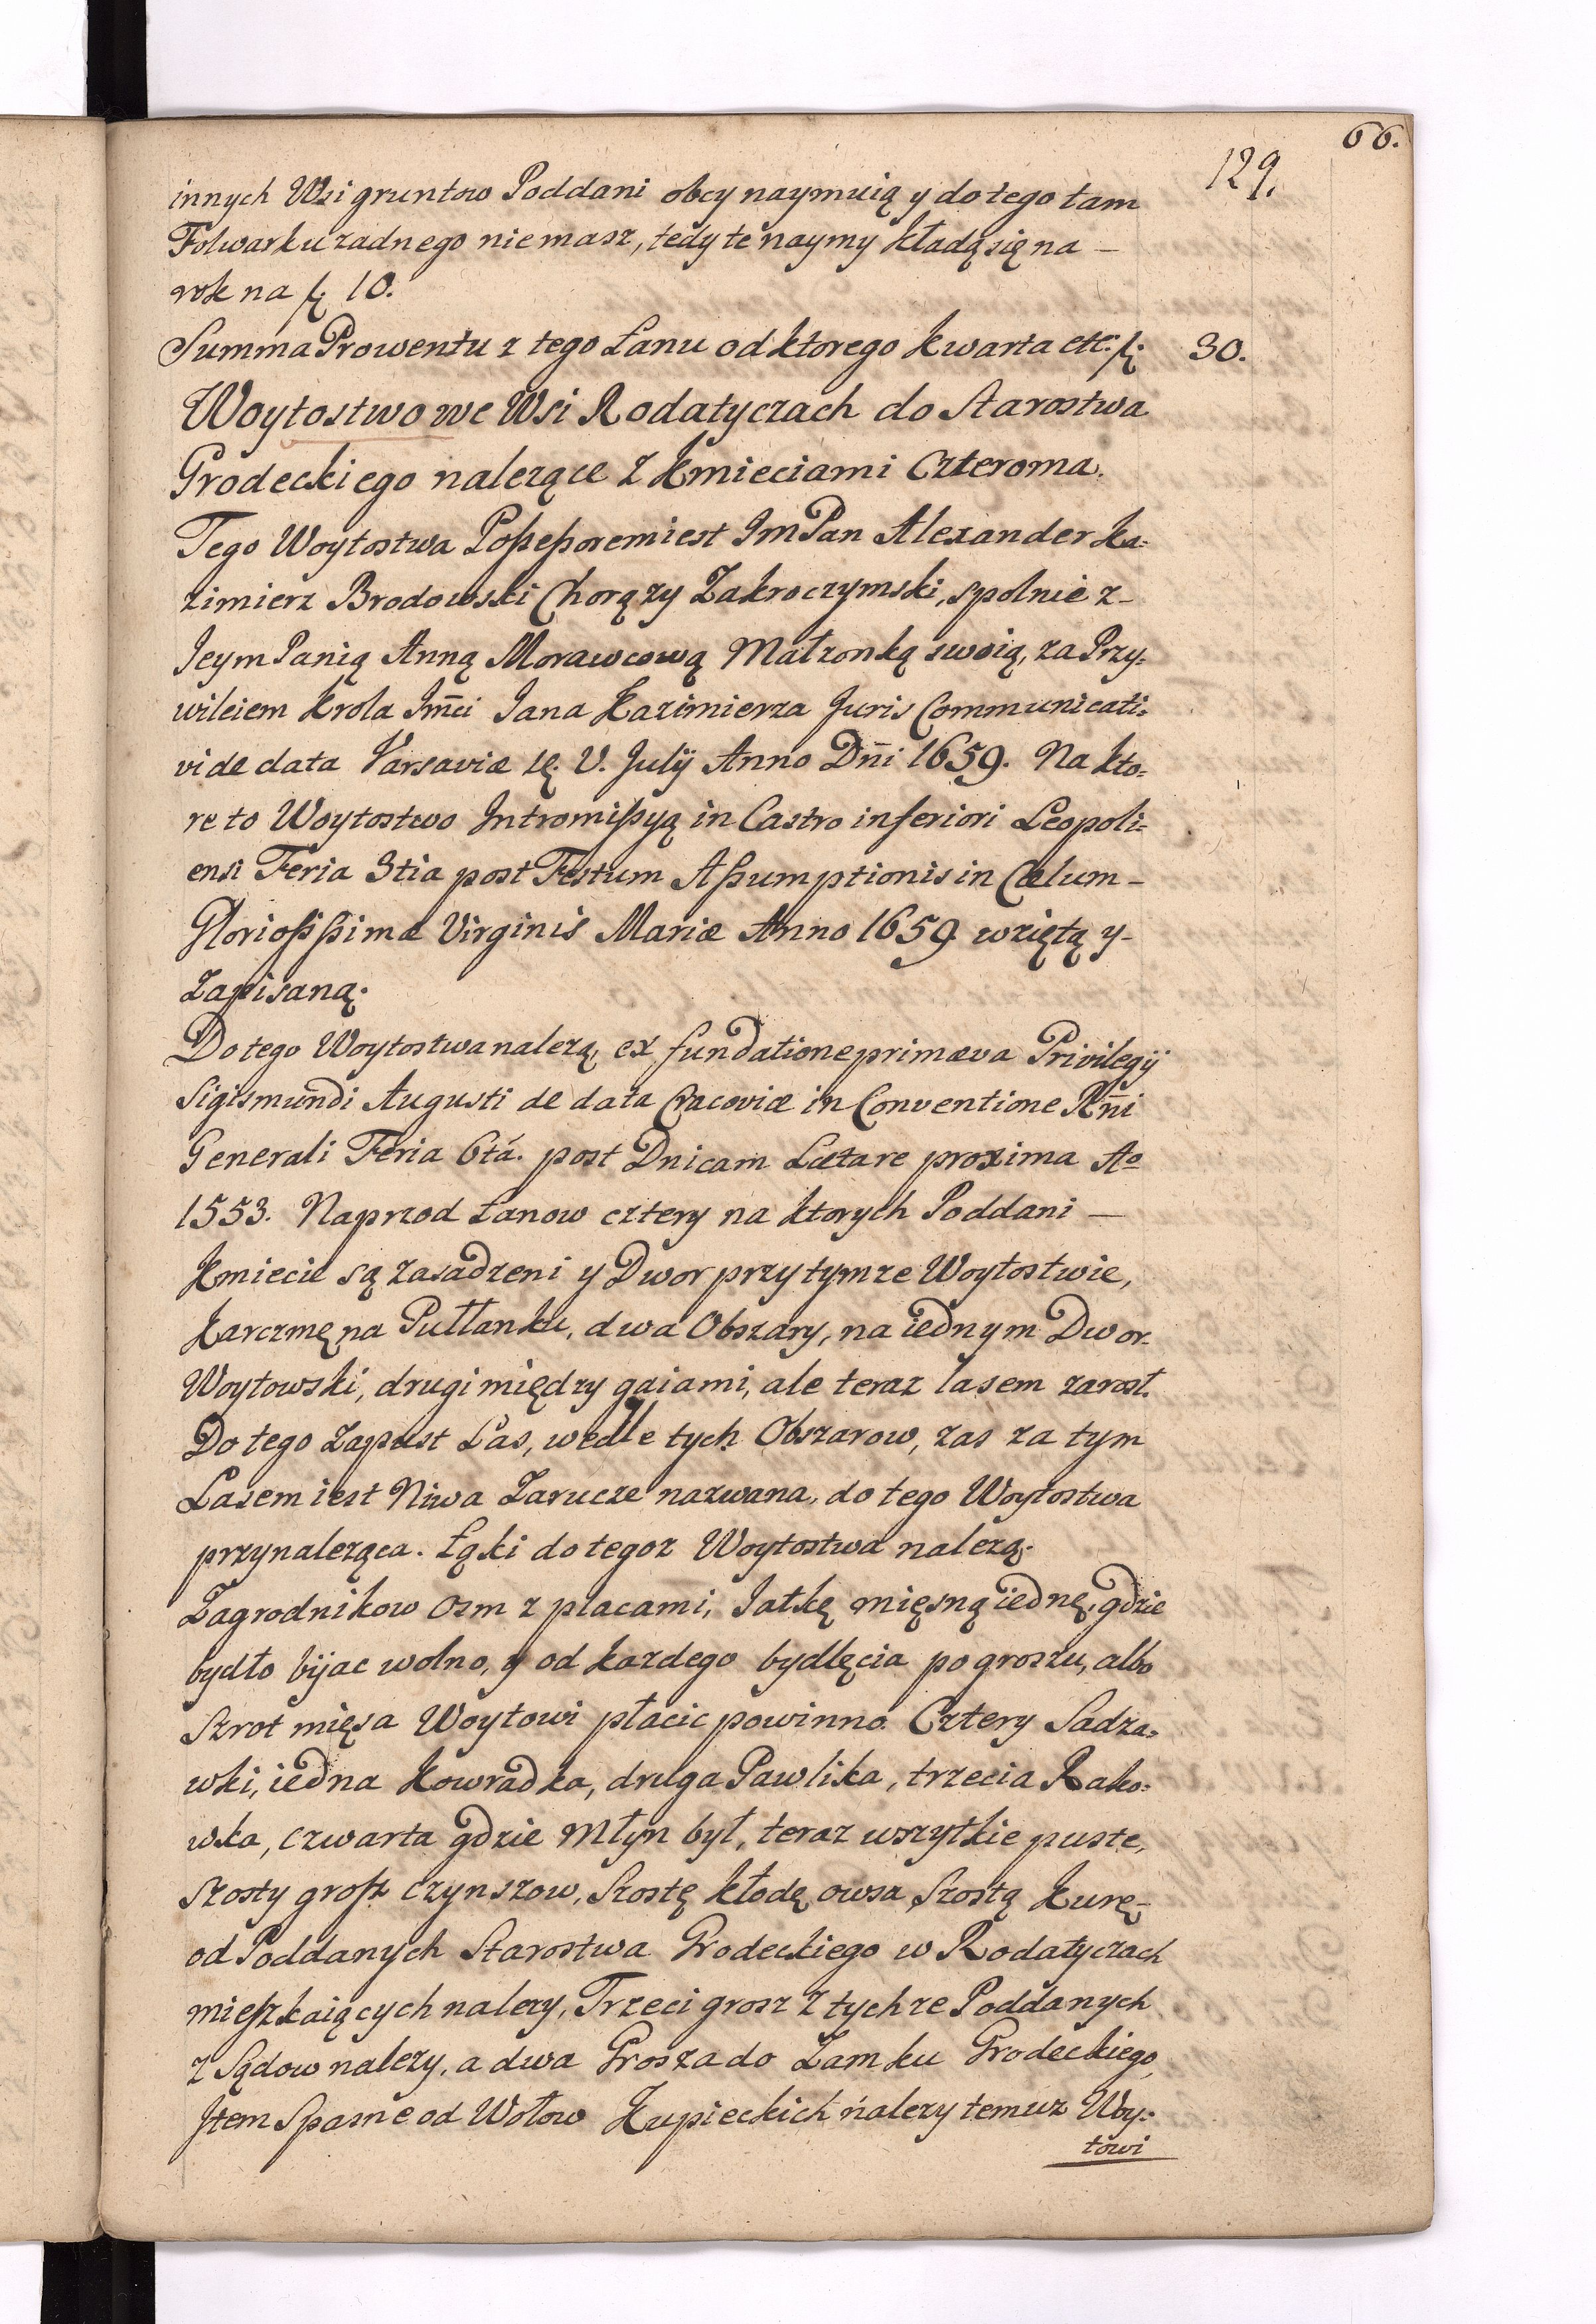 66.
129.
innych Wsi gruntow Poddani obcy naymuią y do tego tam
Folwarku zadnego niemasz, tedy te naymy kładą się na –
rok na f 10.
Summa Prowentu z tego Łanu od ktorego kwarta etc. f: 30.
Woytostwo we Wsi Rodatyczach do Starostwa
Grodeckiego nalezące z Kmieciami Czteroma.
Tego Woytostwa Poßeßorem iest JmPan Alexander Ka:
zimierz Brodowski Chorązy Zakroczymski, spolnie z –
JeymPanią Anną Morawcową Małzonką swoią, za Przy:
wileiem Krola Jm̄ci Jana Kazimierza Juris Communicati:
vi de data Varsaviæ V. Julÿ Anno Dn̄i 1659. Na kto:
re to Woytostwo Intromißyą in Castro inferiori Leopoli:
ensi Feria 3tia post Festum Aßumptionis in Cælum –
Glorioßißimæ Virginis Mariæ Anno 1659 wziętą y –
Zapisaną.
Do tego Woytostwa nalezą, ex fundatione primæva Privilegÿ
Sigismundi Augusti de data Cracoviæ in Conventione Rn̄i
Generali Feria 6tá. post Dnicam Lætare proxima Ao
1553. Naprzod Łanow cztery na ktorych Poddani —
Kmiecie są zasadzeni y Dwor przy tymze Woytostwie,
Karczmę na Pułłanku, dwa Obszary, na iednym Dwor
Woytowski, drugi między gaiami, ale teraz lasem zarosł.
Do tego Zapust Las, wedle tych Obszarow, zas za tym
Lasem iest Niwa Zarucze nazwana, do tego Woytostwa
przynaleząca. Łąki do tegoz Woytostwa nalezą.
Zagrodnikow osm z placami, Jatkę mięsną iednę, gdzie
bydło bijac wolno, y od kazdego bydlęcia po groszu, albo
Szrot mięsa Woytowi płacic powinno. Cztery Sadza:
wki, iedna Kowradka, druga Pawlika, trzecia Rako:
wka, czwarta gdzie Młyn był, teraz wszytkie puste,
Szosty groß czynszow, Szostę kłodę owsa, Szostą Kurę –
od Poddanych Starostwa Grodeckiego w Rodatyczach
mießzkaiących nalezy, Trzeci grosz z tychze Poddanych
z Sądow nalezy, a dwa Grosza do Zamku Grodeckiego,
Jtem Spasne od Wołow Kupieckich nalezy temuz Woy:
towi